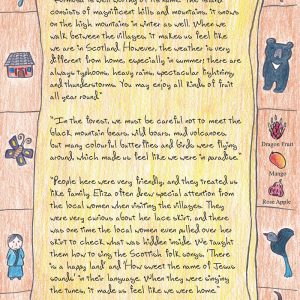 Formosa is well worthy of its name. The island
consists of magnificent hills and mountains, it snows
on the high mountains in winter as well. When we
walk between the villages, it makes us feel like
we are in Scotland. However, the weather is very
different from home, especially in summer; there are
always typhoons, heavy rains, spectacular lightning
and thunderstorms. You may enjoy all kinds of fruit
all year round"
"In the forest, we must be careful not to meet the
black mountain bears, wild boars, mud volcanoes,
but many colourful butterflies and birds were flying
around, which made us feel like we were in paradise."
Dragon Fruit
Mango
Rose Apple
"People here were very friendly, and they treated us
like family. Eliza often drew special attention from
the local women when visiting the villages. They
were very curious about her lace skirt, and there
was one time the local women even pulled over her
skirt to check what was hidden inside. We taught
them how to sing the Scottish folk songs, 'There
is a happy land' and 'How sweet the name of Jesus
sounds' in their language. When they were singing
the tunes, it made us feel like we were home."